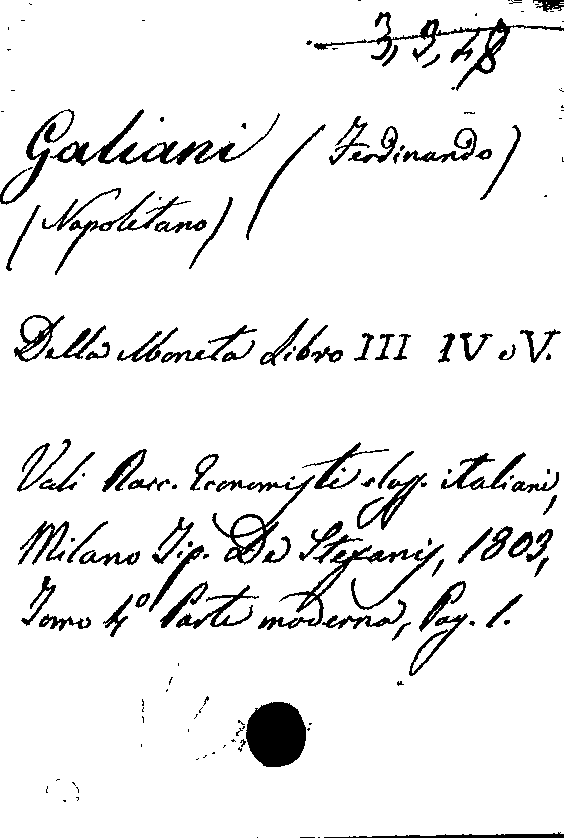 3, 9, 48
Galiani (Ferdinando)
(Napoletano)
Della Moneta Libro III IV e V.
Vedi Racc. Economisti class. italiani,
Milano Tip. De Stefanis, 1803,
Tomo 4º Parte moderna, Pag. 1.